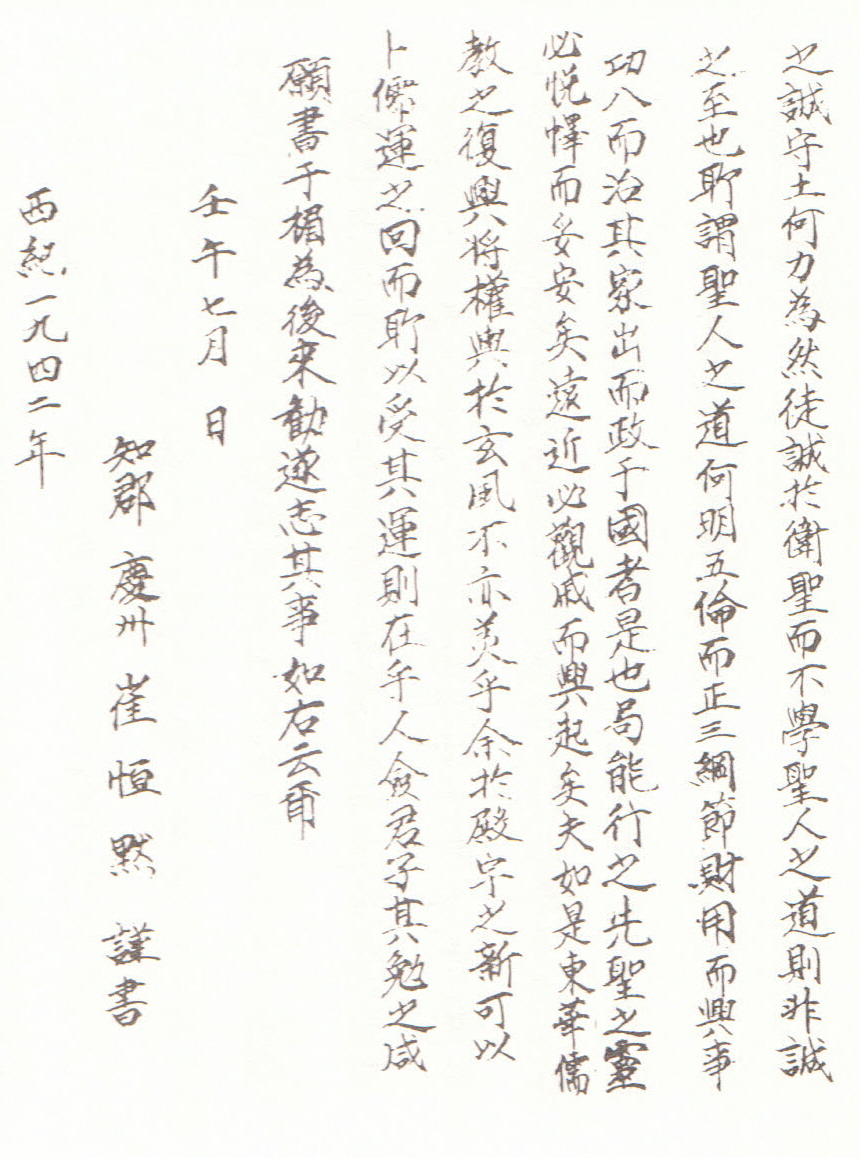 之誠守土何力為然徒誠於衛聖而不學聖人之道則非誠
之至也所謂聖人之道何明五倫而正三綱節財用而興事
功入而治其家出而政于國者是也苟能行之先聖之靈
必悅懌而妥安矣遠近必觀感而興起矣夫如是東華儒
教之復興將權輿於玄風不亦美乎余於殿宇之新可以
卜儒運之回而所以受其運則在乎人僉君子其勉之咸
願書于楣為後來勸遂志其事如右云爾
壬午七月 日
知郡 慶州 崔恒默 謹書
西紀一九四二年